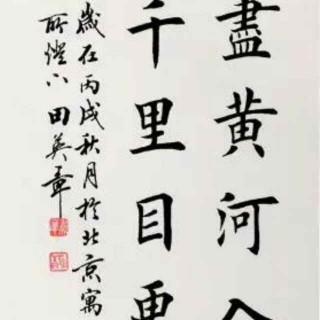 盡黄河入
千里目更
歲在丙戌秋月於北京寓
所燈下田英章